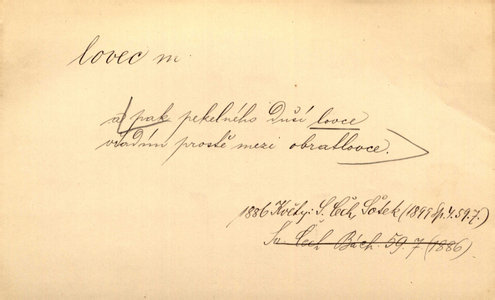 lovec m.
a pak pekelného duší lovce
vřadím prostě mezi obratlovce.
1886 Květy: S. Čech, Šotek (1899 Sp. 4. 59. 7.)
Sv. Čech Bách. 59. 7 (1886)